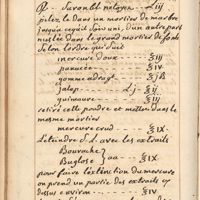 ℞ Savon blet nétoyez ℥iij
pilez le dans un mortier de marbre
jusqua ce quil soit uni, d'un autre part
mettez dans le grand mortier de fonte
selon lordre qui suit
mercure doux ℥iij
panacée ℥iv
gomme adragt ℥jß
jalap ℥ij
guimauve ℥iij
retirés cette poudre et mettez dans le
mesme mortier
mercure crud ℥ix
Eteindre s.l. avec les extraits
Bourache
Buglose } aa ℥ix
pour faire lextinction du mercure
on prend un partie des extraits cy
dessus environ ℥iv